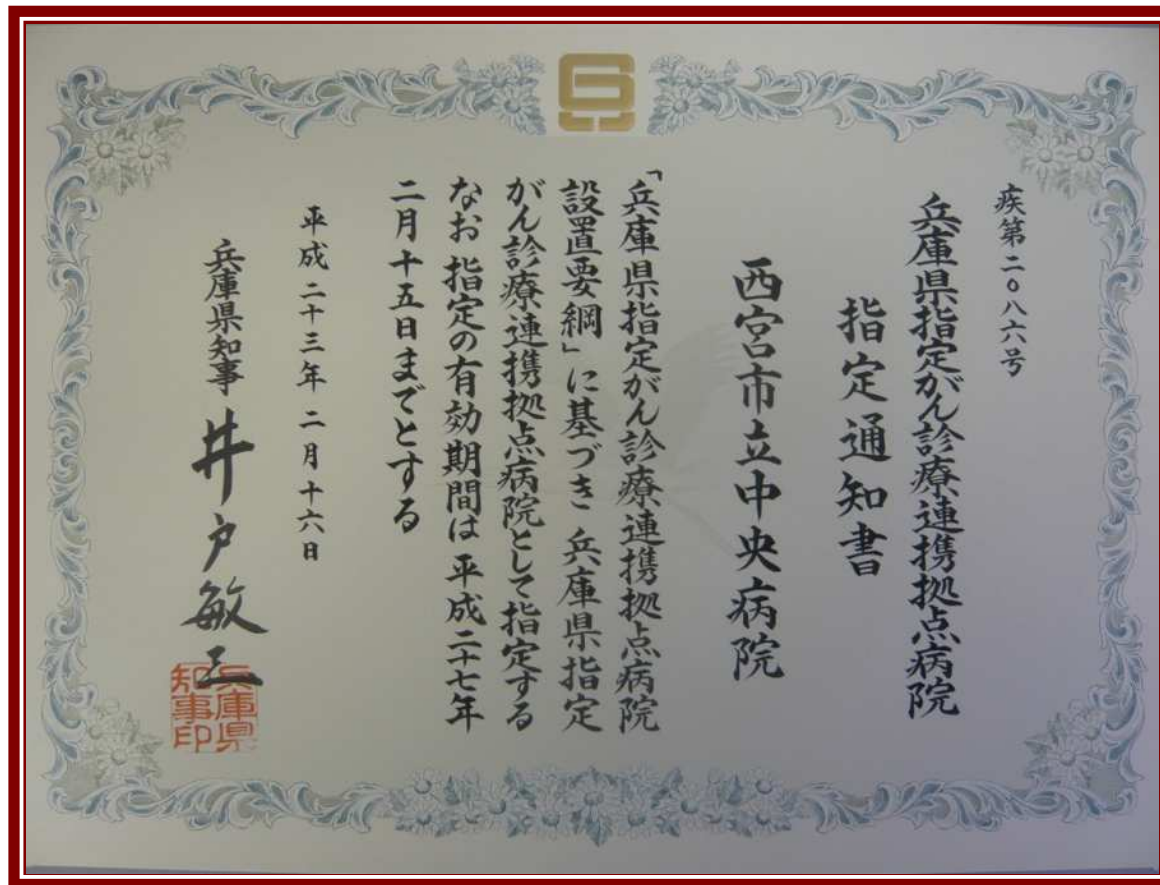 疾第二〇八六号
兵庫県指定がん診療連携拠点病院
指定通知書
西宮市立中央病院
「兵庫県指定がん診療連携拠点病院
設置要綱」に基づき 兵庫県指定
がん診療連携拠点病院として指定する
なお 指定の有効期間は 平成二十七年
二月十五日までとする
平成二十三年 二月十六日
兵庫県知事 井戸敏三
兵庫県
知事印